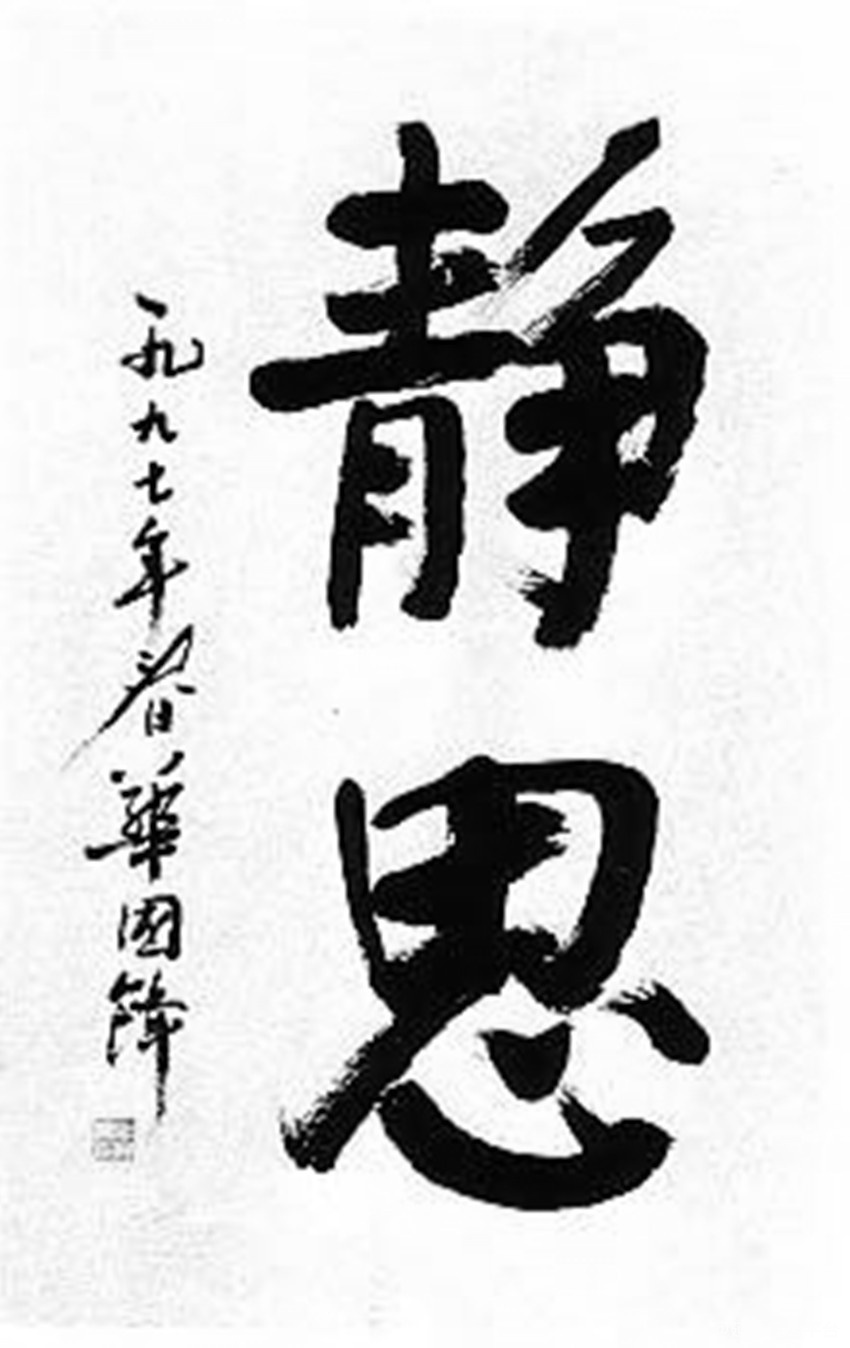 静思
一九九七年春華国鋒